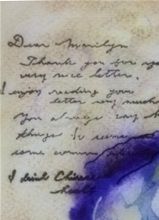 Dear Marilyn
Thank you for your
very nice letter.
I enjoy reading your
letter very much
You always say
things
some
I drink Chinese